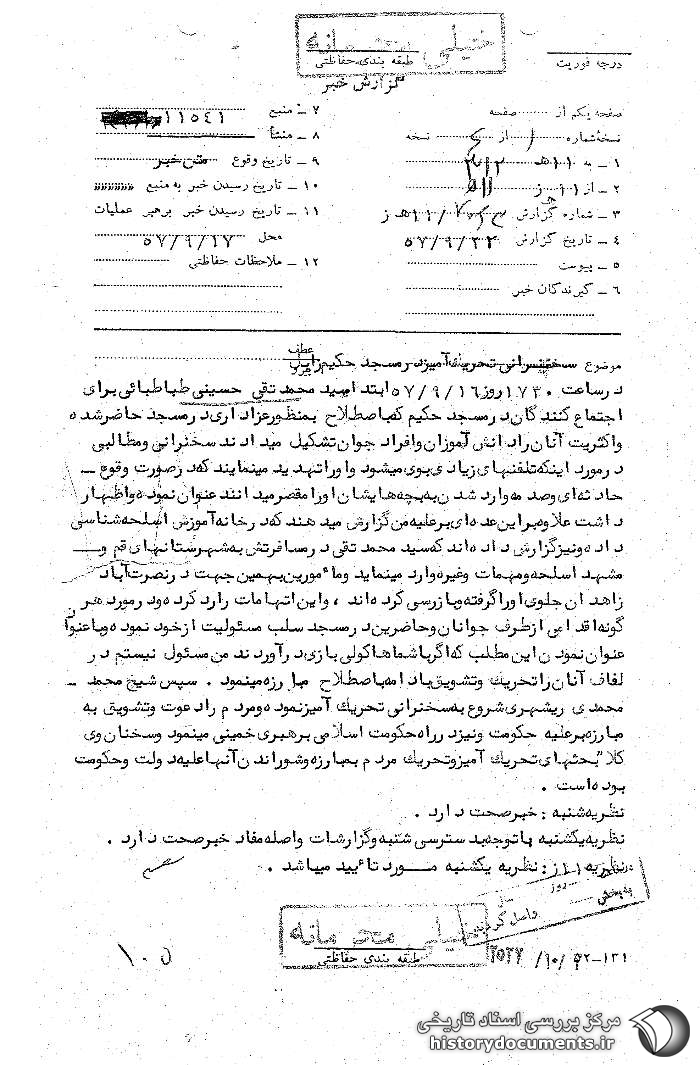 خیلی محرمانه
طبقه بندی حفاظتی
درجه فوریت
گزارش خبر
صفحه یکم از صفحه
نسخه شماره ۱ از نسخه
۱ ـ به ۱۱هـ ۳۱۲
۲ ـ از ۱۱ز هـ
۳ ـ شماره گزارش
۴ ـ تاریخ گزارش ۵۷/۹/۲۲
۵ ـ پیوست
۶ ـ گیرندگان خبر
۷ ـ منبع ۱۱۵۴۱
۸ ـ منشأ
۹ ـ تاریخ وقوع متن خبر
۱۰ ـ تاریخ رسیدن خبر به منبع
۱۱ ـ تاریخ رسیدن خبر برهبر عملیات
محل ۵۷/۹/۱۷
۱۲ ـ ملاحظات حفاظتی
موضوع سخنرانی تحریک آمیز در مسجد حکیم زابل
عطف
در ساعت ۱۷۳۰ روز ۵۷/۹/۱۶ ابتدا سید محمد تقی حسینی طباطبائی برای
اجتماع کنندگان در مسجد حکیم که باصطلاح بمنظور عزاداری در مسجد حاضر شده
و اکثریت آنان را دانش آموزان و افراد جوان تشکیل میدادند سخنرانی و مطالبی
در مورد اینکه تلفنهای زیادی بوی میشود و او را تهدید مینمایند که در صورت وقوع ـ
حادثه ای و صدمه وارد شدن به بچه هایشان او را مقصر میدانند عنوان نموده و اظهار
داشت علاوه بر این عده ای بر علیه من گزارش میدهند که در خانه آموزش اسلحه شناسی
داده و نیز گزارش داده اند که سید محمد تقی در مسافرتش به شهرستانهای قم و ـ
مشهد اسلحه و مهمات و غیره وارد مینماید و مأمورین بهمین جهت در نصرت آباد
زاهدان جلوی او را گرفته و بازرسی کرده اند ، و این اتهامات را رد کرده و در مورد هر
گونه اقدامی از طرف جوانان و حاضرین در مسجد سلب مسئولیت از خود نموده و با عنوان
عنوان نمودن این مطلب که اگر باشماها کولی بازی در آوردند من مسئول نیستم در
لفاف آنان را تحریک و تشویق بادامه باصطلاح مبارزه مینمود . سپس شیخ محمد ـ
محمدی ریشهری شروع به سخنرانی تحریک آمیز نموده و مردم را دعوت و تشویق به
مبارزه بر علیه حکومت و نیز در راه حکومت اسلامی برهبری خمینی مینمود و سخنان وی
کلاً بحثهای تحریک آمیز و تحریک مردم بمبارزه و شوراندن آنها علیه دولت و حکومت
بوده است .
نظریه شنبه : خبر صحت دارد .
نظریه یکشنبه با توجه به دسترسی شنبه و گزارشات واصله مفاد خبر صحت دارد .
نظریه ۱۱ز : نظریه یکشنبه مورد تأیید میباشد .
روز
به بخش
واصل گردید
خیلی محرمانه
طبقه بندی حفاظتی
۱۰۵
مرکز بررسی اسناد تاریخی
historydocuments.ir